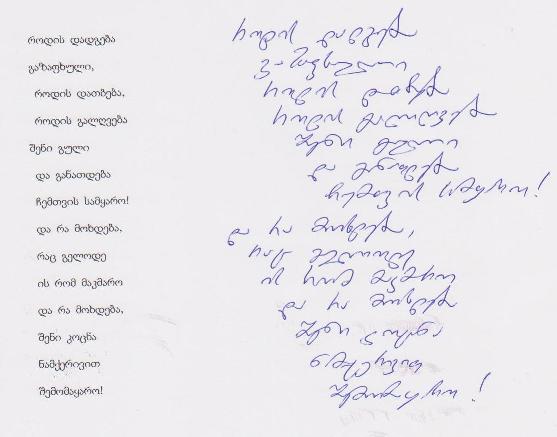 როდის დადგება
გაზაფხული,
როდის დათბება,
როდის გალღვება
შენი გული
და განათდება
ჩემთვის სამყარო!
და რა მოხდება,
რაც გელოდე
ის რომ მაკმარო
და რა მოხდება,
შენი კოცნა
ნამქერივით
შემომაყარო!
როდის დადგება
გაზაფხული
როდის დათბება
როდის გალღვება
შენი გული
და განათდება
ჩემთვის სამყარო!
და რა მოხდება,
რაც გელოდე
ის რომ მაკმარო
და რა მოხდება
შენი კოცნა
ნამქერივით
შემომაყარო!